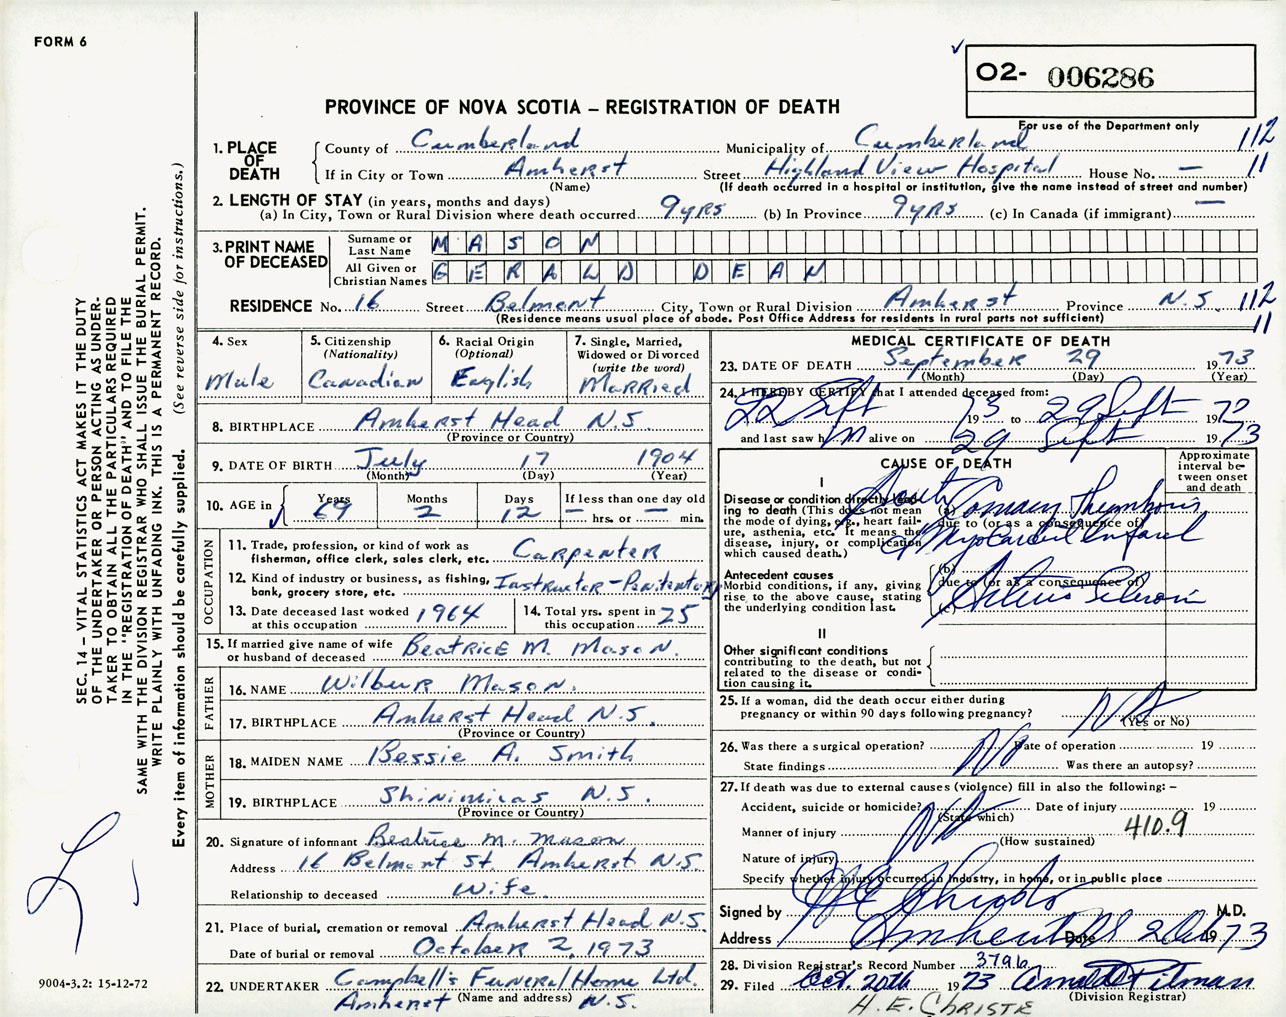 FORM 6
02- 006286
PROVINCE OF NOVA SCOTIA – REGISTRATION OF DEATH
For use of the Department only
1. PLACE OF DEATH
County of Cumberland Municipality of Cumberland 112
If in City or Town Amherst Street Highland View Hospital House No. — 11
(Name) (If death occurred in a hospital or institution, give the name instead of street and number)
2. LENGTH OF STAY (in years, months and days)
(a) In City, Town or Rural Division where death occurred 9yrs (b) In Province 9yrs (c) In Canada (if immigrant) —
3. PRINT NAME OF DECEASED
Surname or Last Name MASON
All Given or Christian Names GERALD DEAN
RESIDENCE No. 16 Street Belmont City, Town or Rural Division Amherst Province N.S. 112
(Residence means usual place of abode. Post Office Address for residents in rural parts not sufficient) 11
4. Sex
Male
5. Citizenship
(Nationality)
Canadian
6. Racial Origin
(Optional)
English
7. Single, Married,
Widowed or Divorced
(write the word)
Married
8. BIRTHPLACE Amherst Head N.S
(Province or Country)
9. DATE OF BIRTH July 17 1904
(Month) (Day) (Year)
10. AGE in
Years Months Days If less than one day old
69 2 12 — hrs. or — min.
OCCUPATION
11. Trade, profession, or kind of work as
fisherman, office clerk, sales clerk, etc. Carpenter
12. Kind of industry or business, as fishing,
bank, grocery store, etc. Instructor - Penitentiary
13. Date deceased last worked
at this occupation 1964
14. Total yrs. spent in
this occupation 25
15. If married give name of wife
or husband of deceased Beatrice M. Mason.
FATHER
16. NAME Wilbur Mason.
17. BIRTHPLACE Amherst Head N.S.
(Province or Country)
MOTHER
18. MAIDEN NAME Bessie A. Smith
19. BIRTHPLACE Shinimicas N.S.
(Province or Country)
20. Signature of informant Beatrice M. Mason
Address 16 Belmont St. Amherst N.S.
Relationship to deceased Wife.
21. Place of burial, cremation or removal Amherst Head N.S.
Date of burial or removal October 2, 1973
22. UNDERTAKER Campbell's Funeral Home Ltd.
(Name and address)
Amherst N.S.
MEDICAL CERTIFICATE OF DEATH
23. DATE OF DEATH September 29 1973
(Month) (Day) (Year)
24. I HEREBY CERTIFY that I attended deceased from:
Sept 1973 to 29 Sept 19
and last saw him alive on 29 Sept 1973
CAUSE OF DEATH
Approximate
interval be-
tween onset
and death
I
Disease or condition directly lead-
ing to death (This does not mean
the mode of dying, e.g., heart fail-
ure, asthenia, etc. It means the
disease, injury, or complication
which caused death.)
(a) Coronary Thrombosis
due to (or as a consequence of)
Myocardial Infarct
Antecedent causes
Morbid conditions, if any, giving
rise to the above cause, stating
the underlying condition last.
(b)
due to (or as a consequence of)
(c)
II
Other significant conditions
contributing to the death, but not
related to the disease or condi-
tion causing it.
25. If a woman, did the death occur either during
pregnancy or within 90 days following pregnancy?
(Yes or No)
26. Was there a surgical operation? No Date of operation 19
State findings Was there an autopsy?
27. If death was due to external causes (violence) fill in also the following: –
Accident, suicide or homicide? Date of injury 19
(State which)
Manner of injury 410.9
(How sustained)
Nature of injury
Specify whether injury occurred in Industry, in home, or in public place
Signed by M.D.
Address Amherst Date 1973
28. Division Registrar's Record Number 3796
29. Filed Oct. 20th 1973 Arnold Pitman
(Division Registrar)
H.E. CHRISTIE
SEC. 14 – VITAL STATISTICS ACT MAKES IT THE DUTY
OF THE UNDERTAKER OR PERSON ACTING AS UNDER-
TAKER TO OBTAIN ALL THE PARTICULARS REQUIRED
IN THE "REGISTRATION OF DEATH" AND TO FILE THE
SAME WITH THE DIVISION REGISTRAR WHO SHALL ISSUE THE BURIAL PERMIT.
WRITE PLAINLY WITH UNFADING INK. THIS IS A PERMANENT RECORD.
Every item of information should be carefully supplied. (See reverse side for instructions.)
9004-3.2: 15-12-72